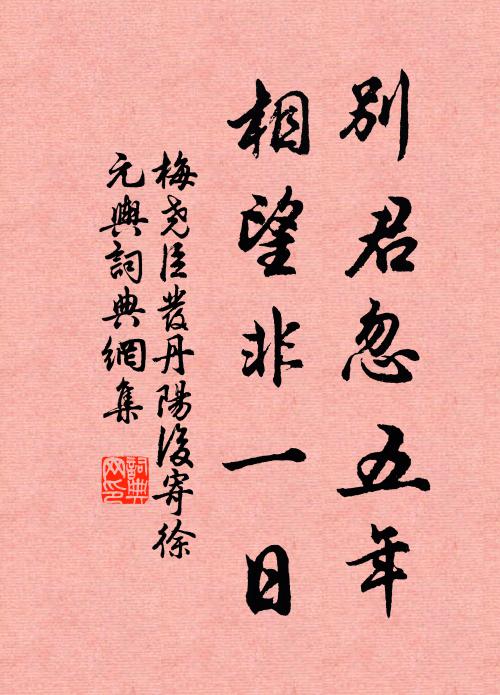 別君忽五年
相望非一日
梅堯臣發丹陽後寄徐
元輿詞典網集
詞典
网印